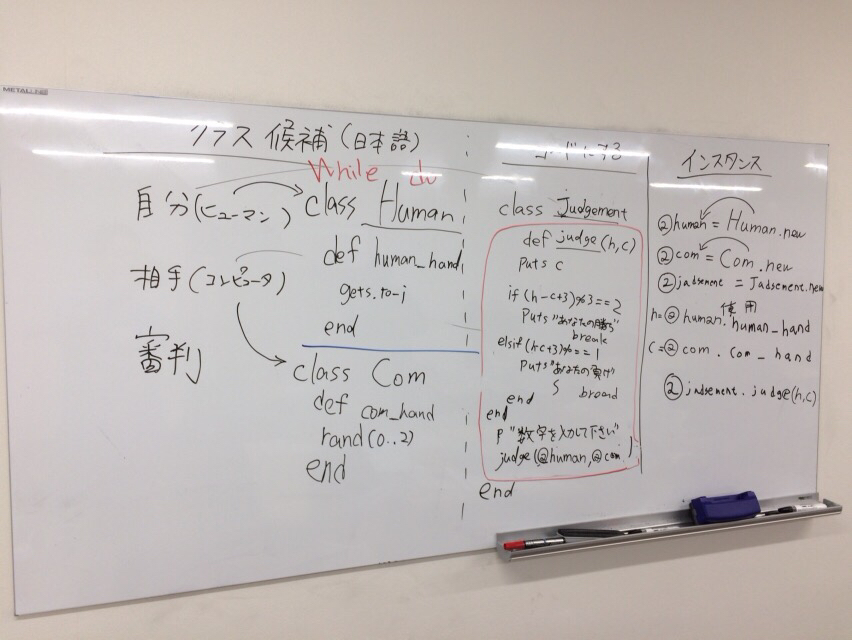 METALLINE
クラス候補(日本語)
While do
自分(ヒューマン)
相手(コンピュータ)
審判
class Human
def human_hand
gets.to-i
end
class Com
def com_hand
rand(0..2)
end
コードにする
class Judgement
def judge(h,c)
puts c
if (h-c+3)%3==2
puts "あなたの勝ち"
break
elsif(h-c+3)%==1
puts "あなたの負け"
S bread
end
end
p "数字を入力して下さい"
judge(@human,@com)
end
インスタンス
@human = Human.new
@com = Com.new
@jadsement = Jadsement.new
使用
h=@human.human_hand
c=@com.com_hand
@jadsement.judge(h,c)